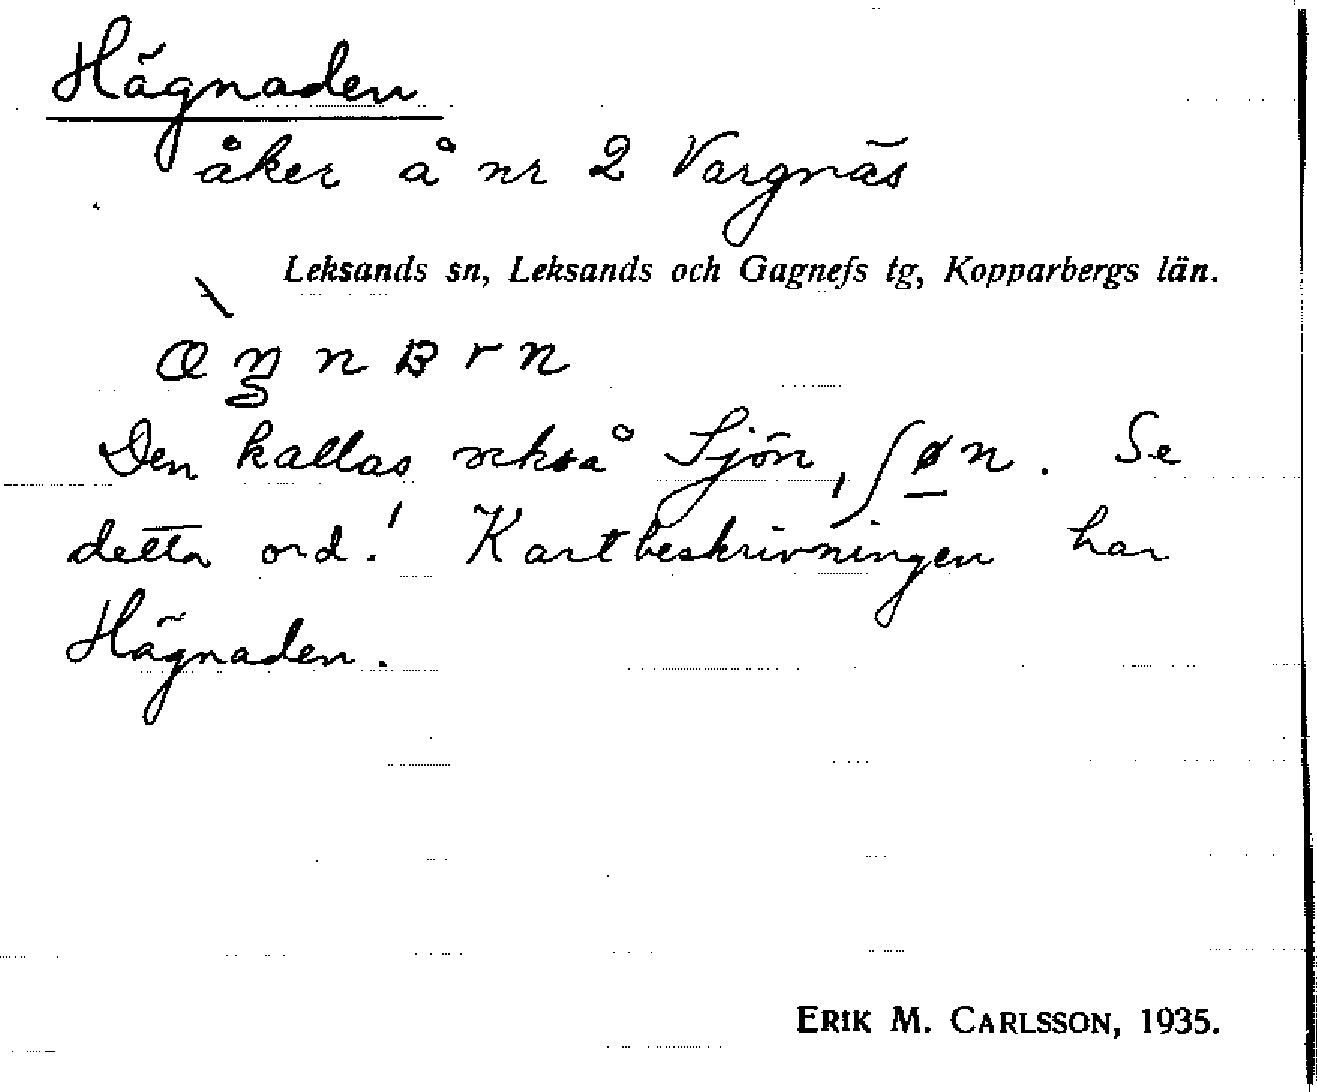 Hägnaden
åker å nr 2 Vargnäs
Leksands sn, Leksands och Gagnefs tg, Kopparbergs län.
Den kallas också Sjön, ʃøn. Se
detta ord! Kartbeskrivningen har
Hägnaden.
ERIK M. CARLSSON, 1935.